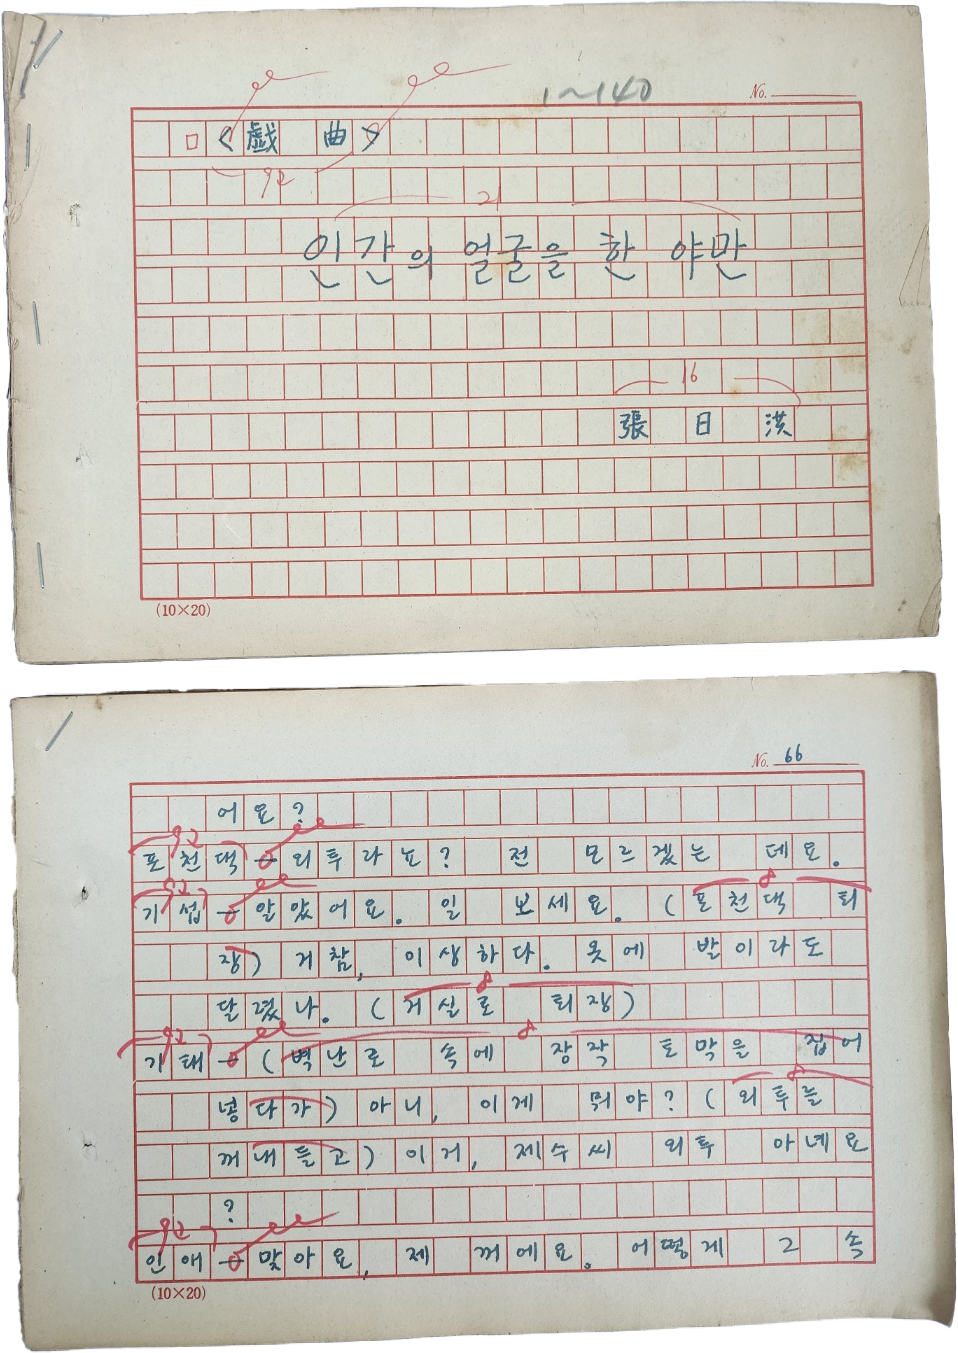 1~140
No.
□ <戱 曲>
92
21
인간의 얼굴을 한 야만
16
張 日 洪
(10×20)
No. 66
어요?
포천댁 - 외투라뇨? 전 모르겠는 데요.
기섭 - 알았어요. 일 보세요. (포천댁 퇴
장) 거참, 이상하다. 옷에 발이라도
달렸나. (거실로 퇴장)
기태 - (벽난로 속에 장작 토막을 집어
넣다가) 아니, 이게 뭐야? (외투를
꺼내들고) 이거, 제수씨 외투 아녜요
?
인애 - 맞아요, 제 꺼에요. 어떻게 그 속
(10×20)